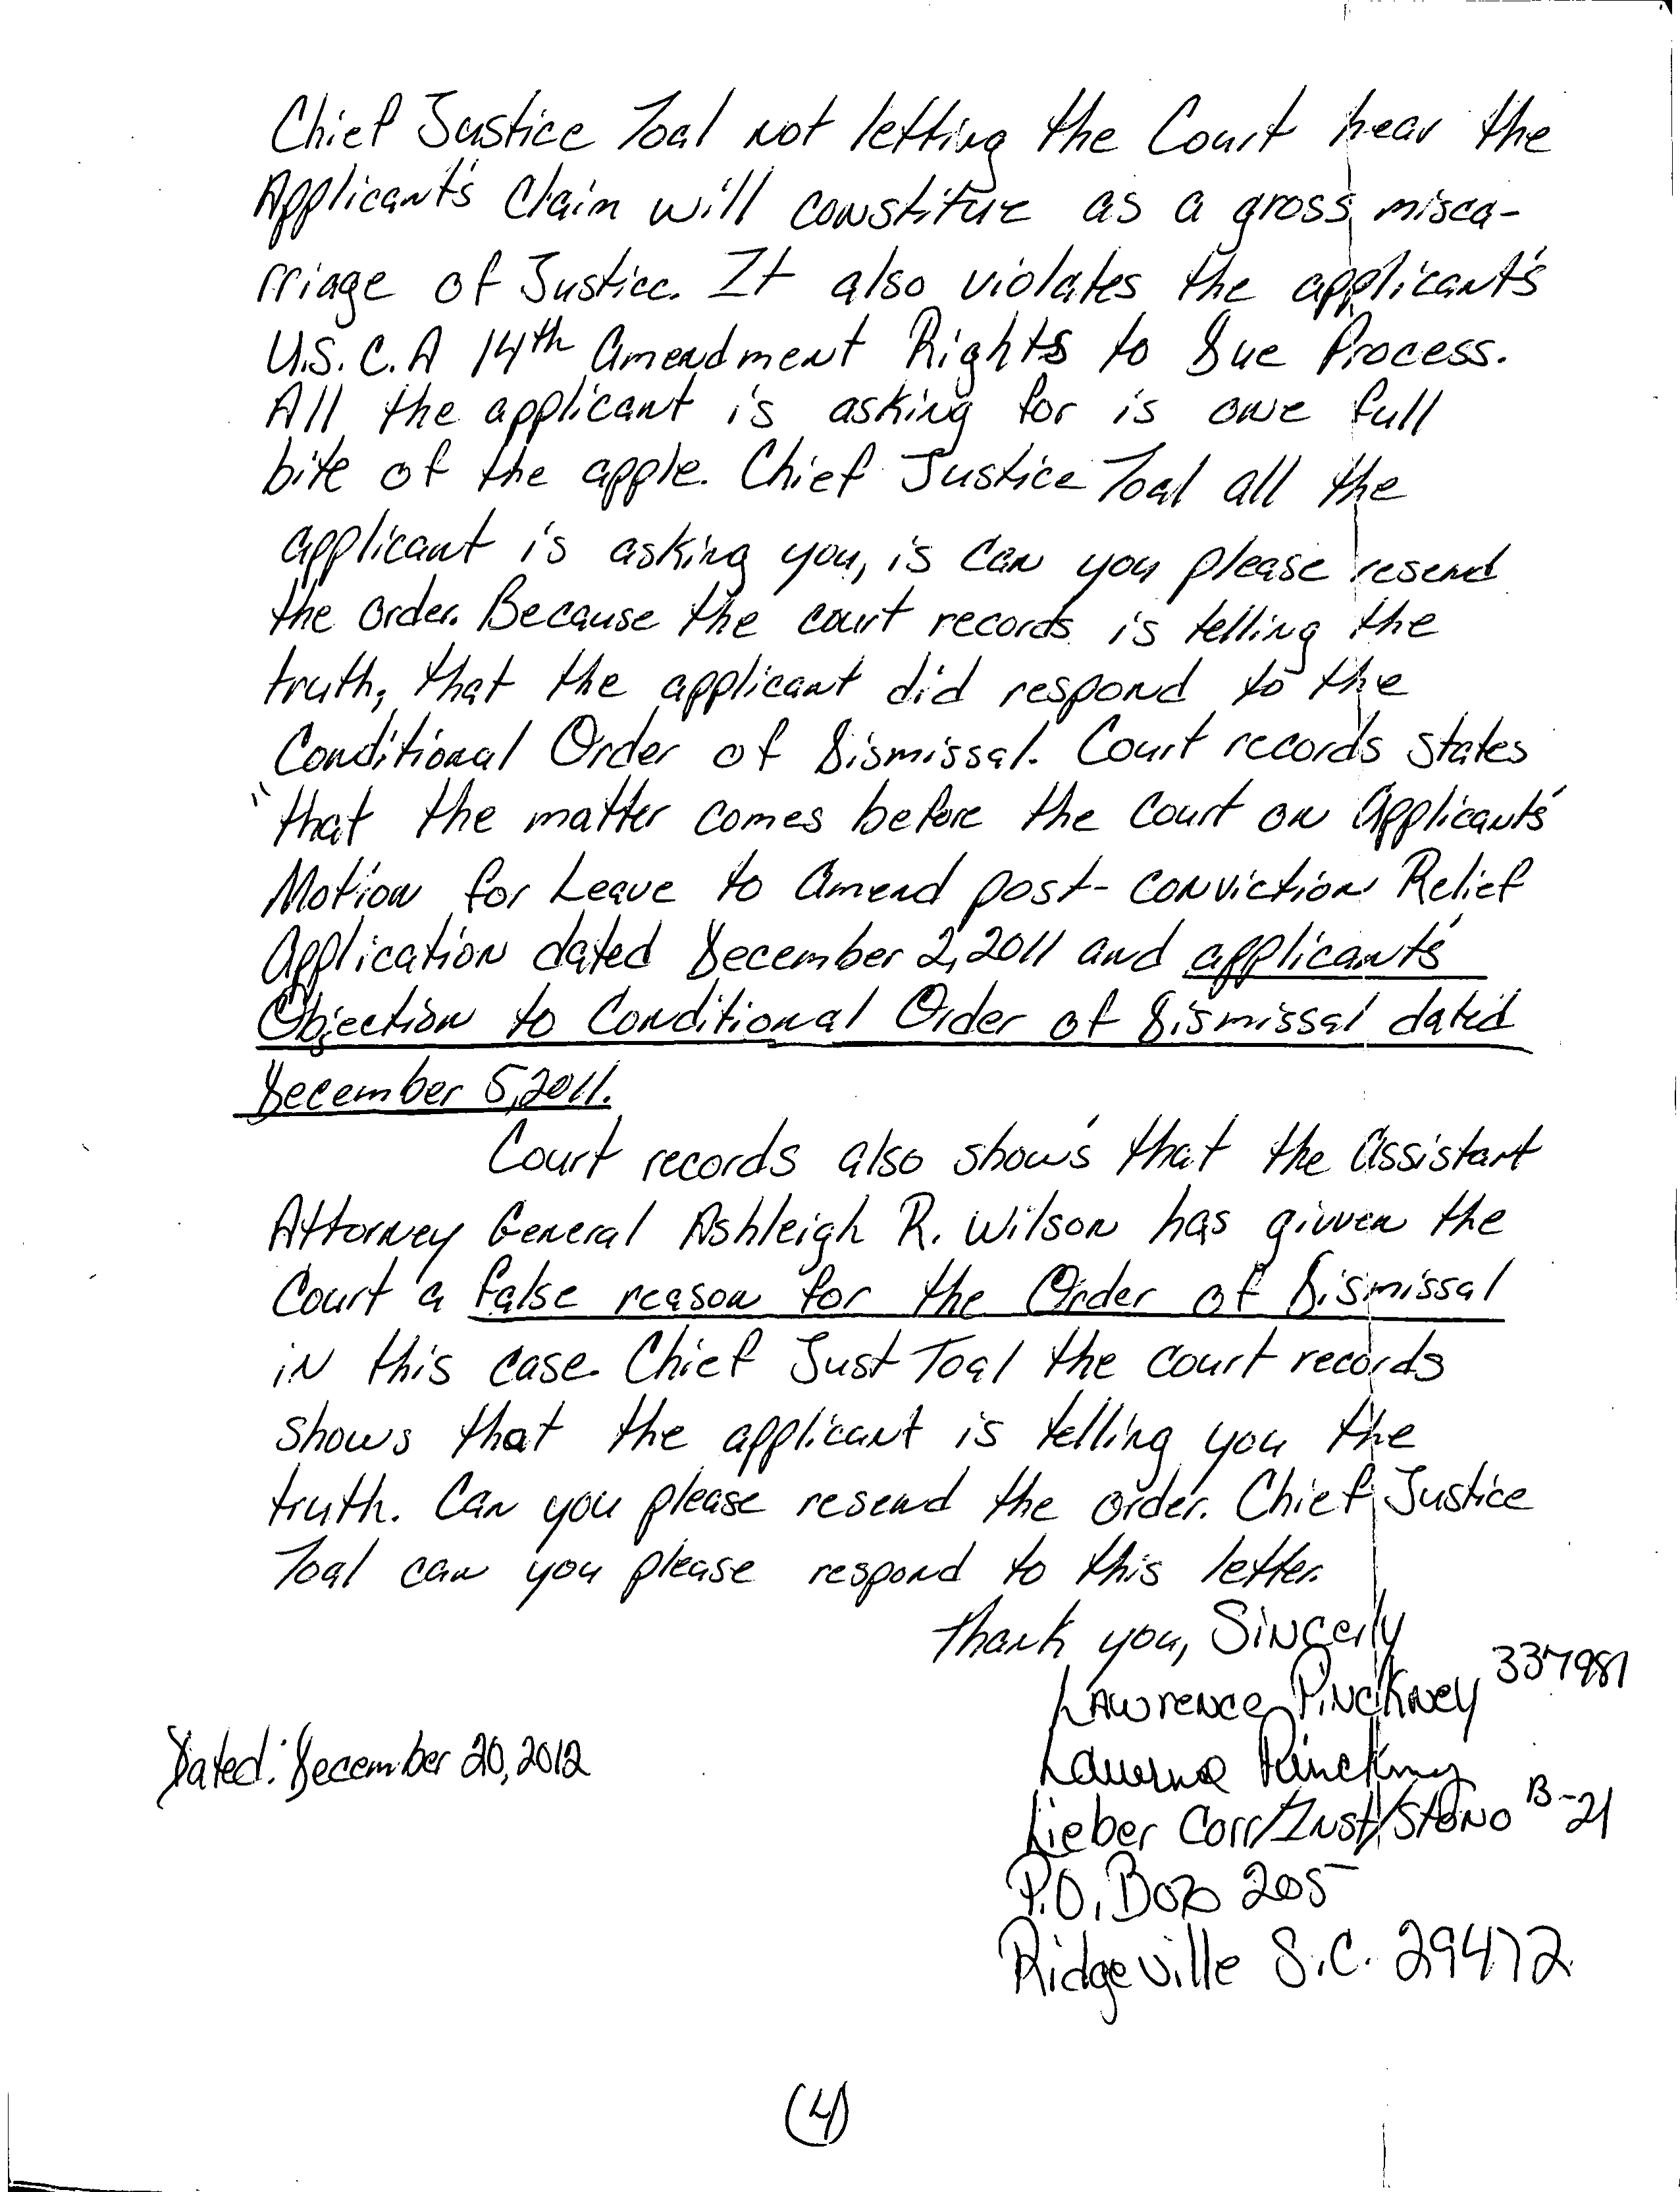 Chief Justice Toal not letting the Court hear the
Applicant's Claim will constitute as a gross misca-
rriage of Justice. It also violates the applicant's
U.S.C.A 14th Amendment Rights to Due Process.
All the applicant is asking for is one full
bite of the apple. Chief Justice Toal all the
applicant is asking you, is can you please resend
the order. Because the court records is telling the
truth, that the applicant did respond to the
Conditional Order of Dismissal. Court records states
"that the matter comes before the Court on Applicants'
Motion for Leave to Amend post-conviction Relief
Application dated December 2, 2011 and applicant's
Objection to Conditional Order of Dismissal dated
December 5, 2011.
Court records also show's that the Assistant
Attorney General Ashleigh R. Wilson has givven the
Court a false reason for the Order of Dismissal
in this case. Chief Just Toal the court records
shows that the applicant is telling you the
truth. Can you please resend the order. Chief Justice
Toal can you please respond to this letter.
Thank you, Sincerly
Lawrence Pinckney 337981
Lawrence Pinckney
Lieber Corr/Inst/Stono B-21
P.O. Box 205
Ridgeville S.C. 29472
Dated: December 20, 2012
(4)